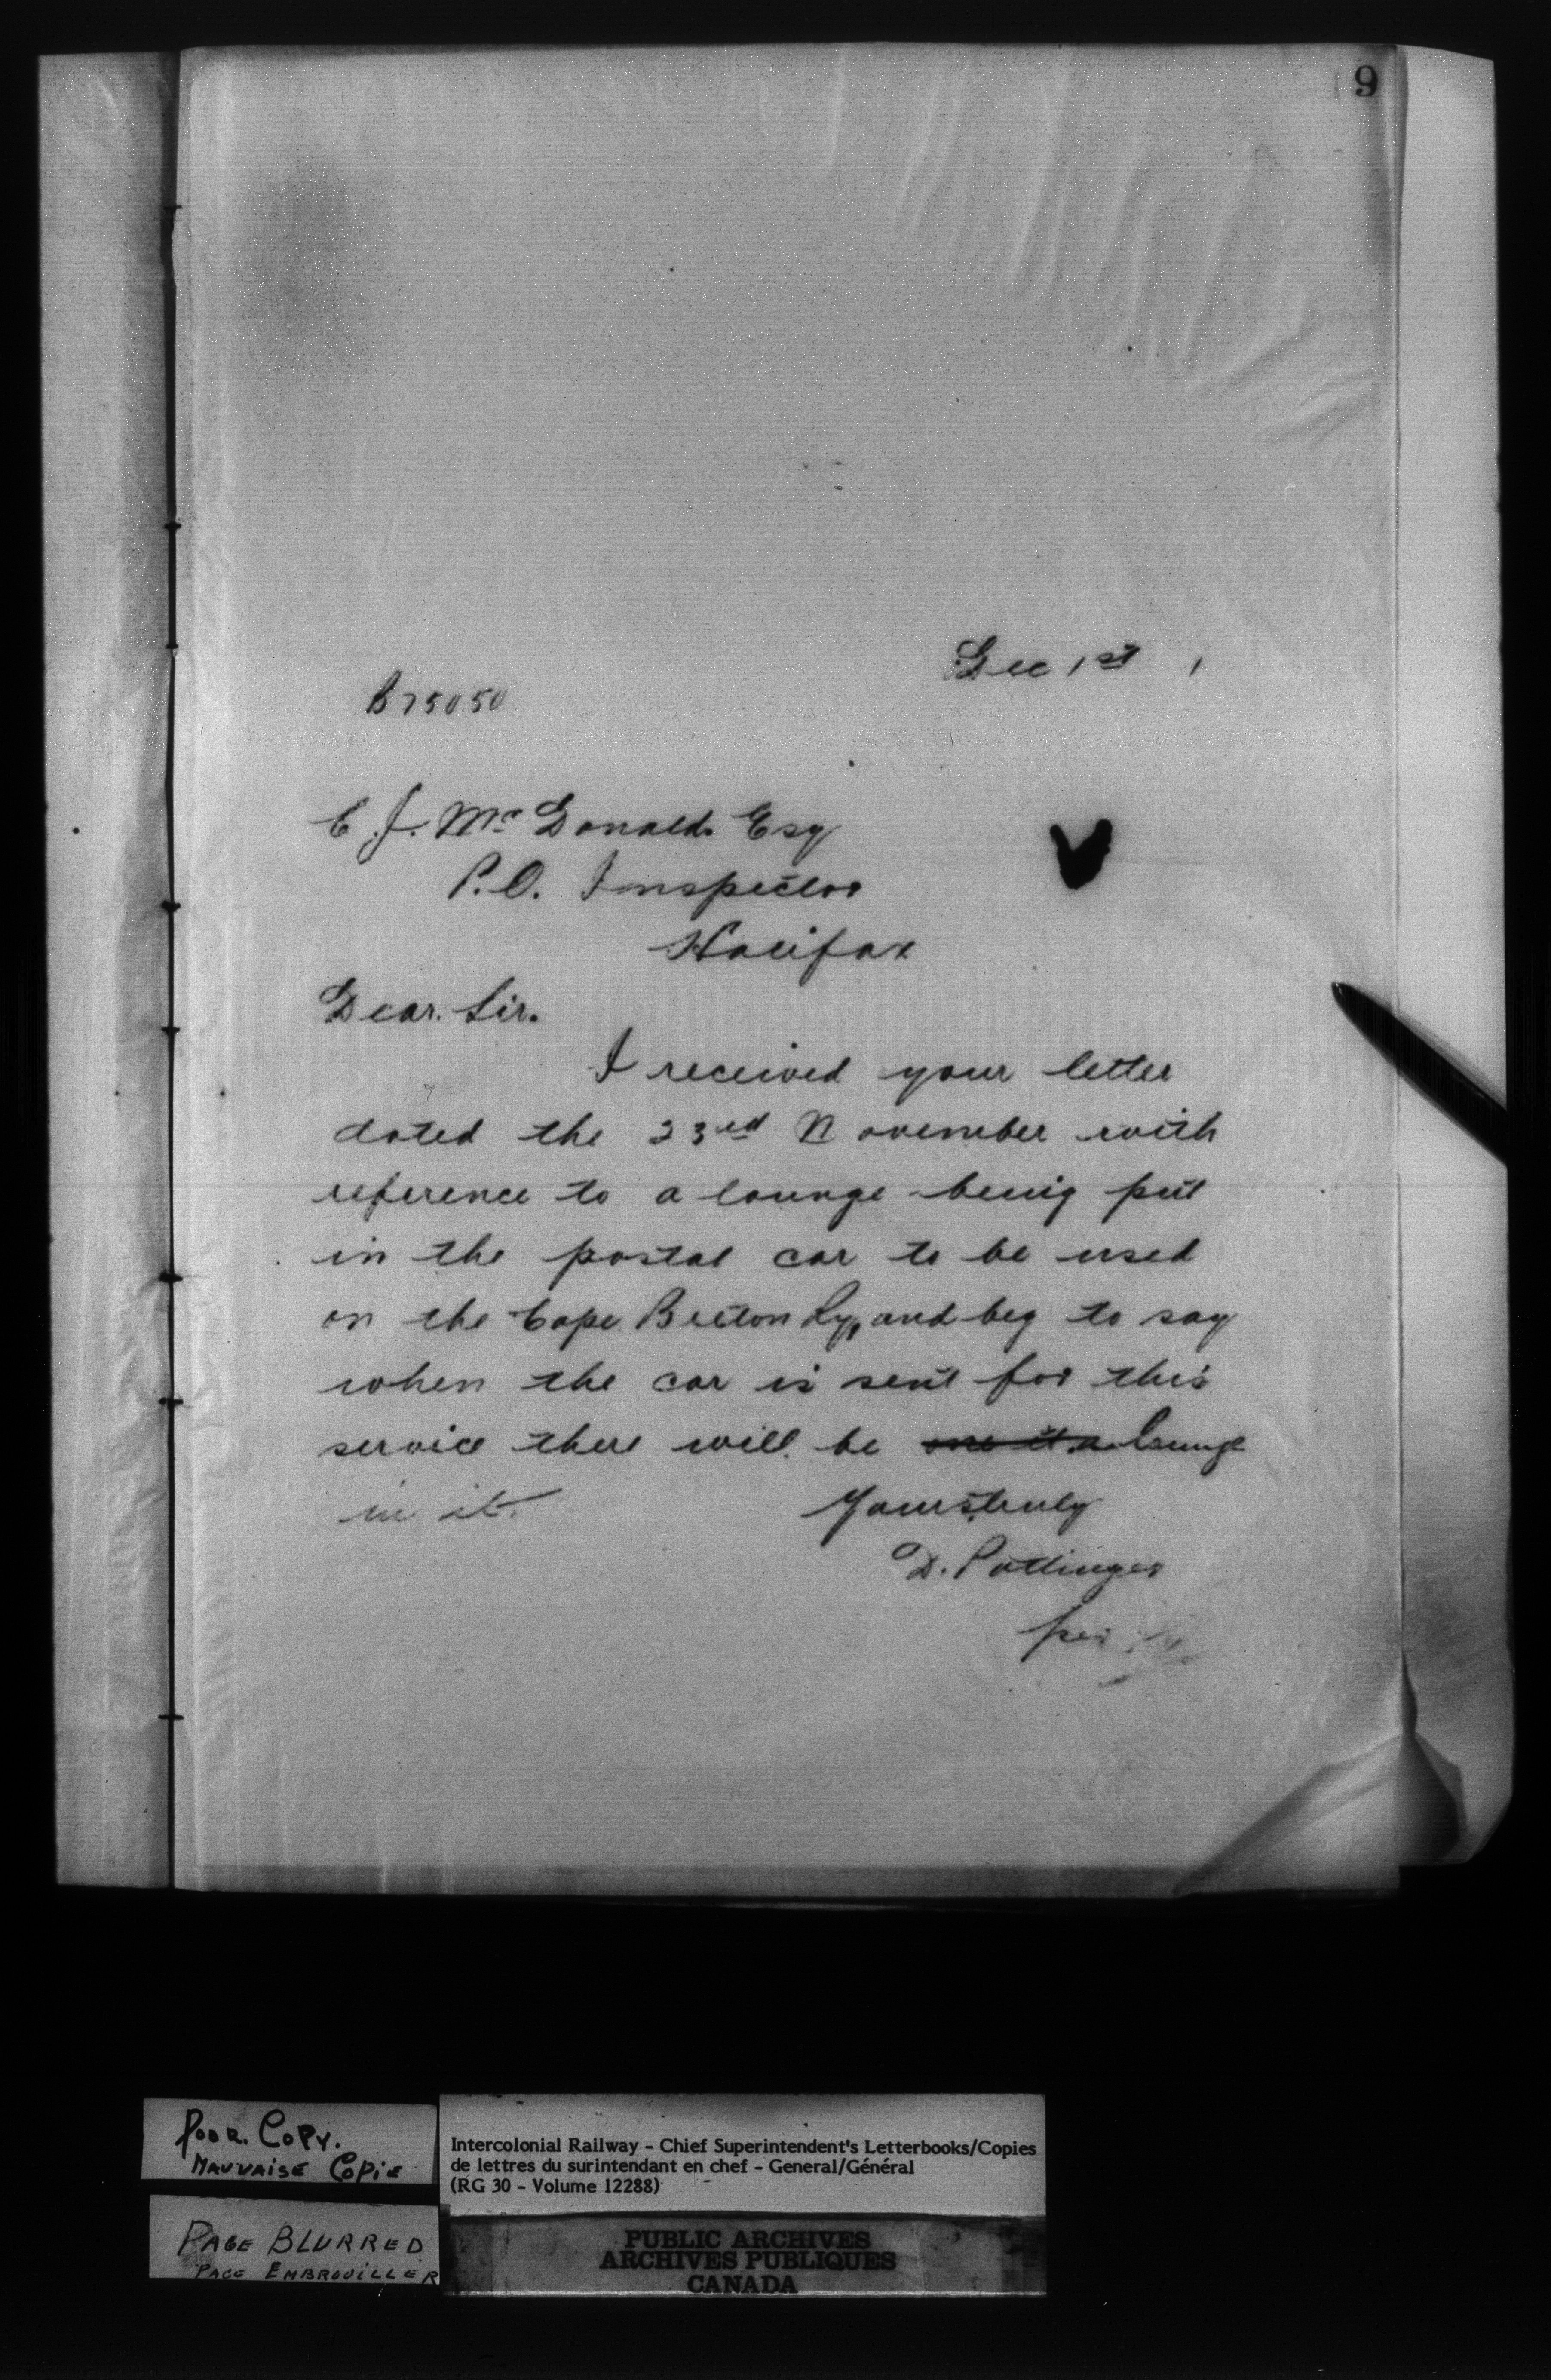 9
Dec 1st 1
B75050
C. J. McDonald Esq
P.O. Inspector
Halifax
Dear Sir.
I received your letter
dated the 23rd November with
reference to a lounge being put
in the postal car to be used
on the Cape Breton Ry, and beg to say
when the car is sent for this
service there will be a lounge
in it.
Yours truly
D. Pottinger
per
Poor Copy.
Mauvaise Copie
Page Blurred
Page Embrouiller
Intercolonial Railway - Chief Superintendent's Letterbooks/Copies
de lettres du surintendant en chef - General/Général
(RG 30 - Volume 12288)
PUBLIC ARCHIVES
ARCHIVES PUBLIQUES
CANADA